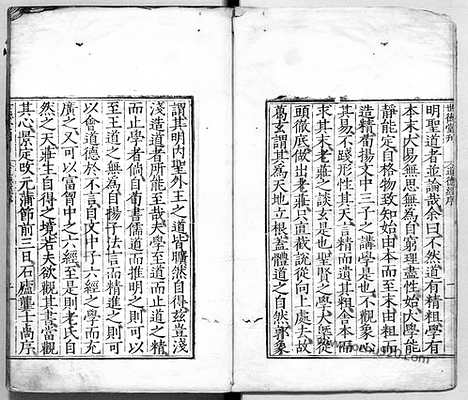 世德堂刊
明聖道者並論哉余曰不然道有精粗學有
本末大易無思無為自窮理盡性始大學能
靜能定自格物致知始由本而至末由粗而
造精荀揚文中三子之講學是也不觀象心
其易不踐形性其天言精而遺其粗舍本而
求其末老莊之談玄是也聖賢之學大學從
頭徹底做出老莊只直截說從向上處去故
為玄謂其為天地立根蓋體道之自然象
謂其明內聖外王之道皆曠然自得玆豈淺
淺造道者所能至哉夫學至道而止道之精
而止學者倘自荀書儒道而推明之則可以
至王道之無為自揚子法言而精進之則可
以會道德於不言自文中子六經之學而充
廣之又可以富胷中之六經至是則老氏自
然之天莊生自得之境若夫欲觀其書當觀
其心景定改元蒲節前三日石廬龔士卨序